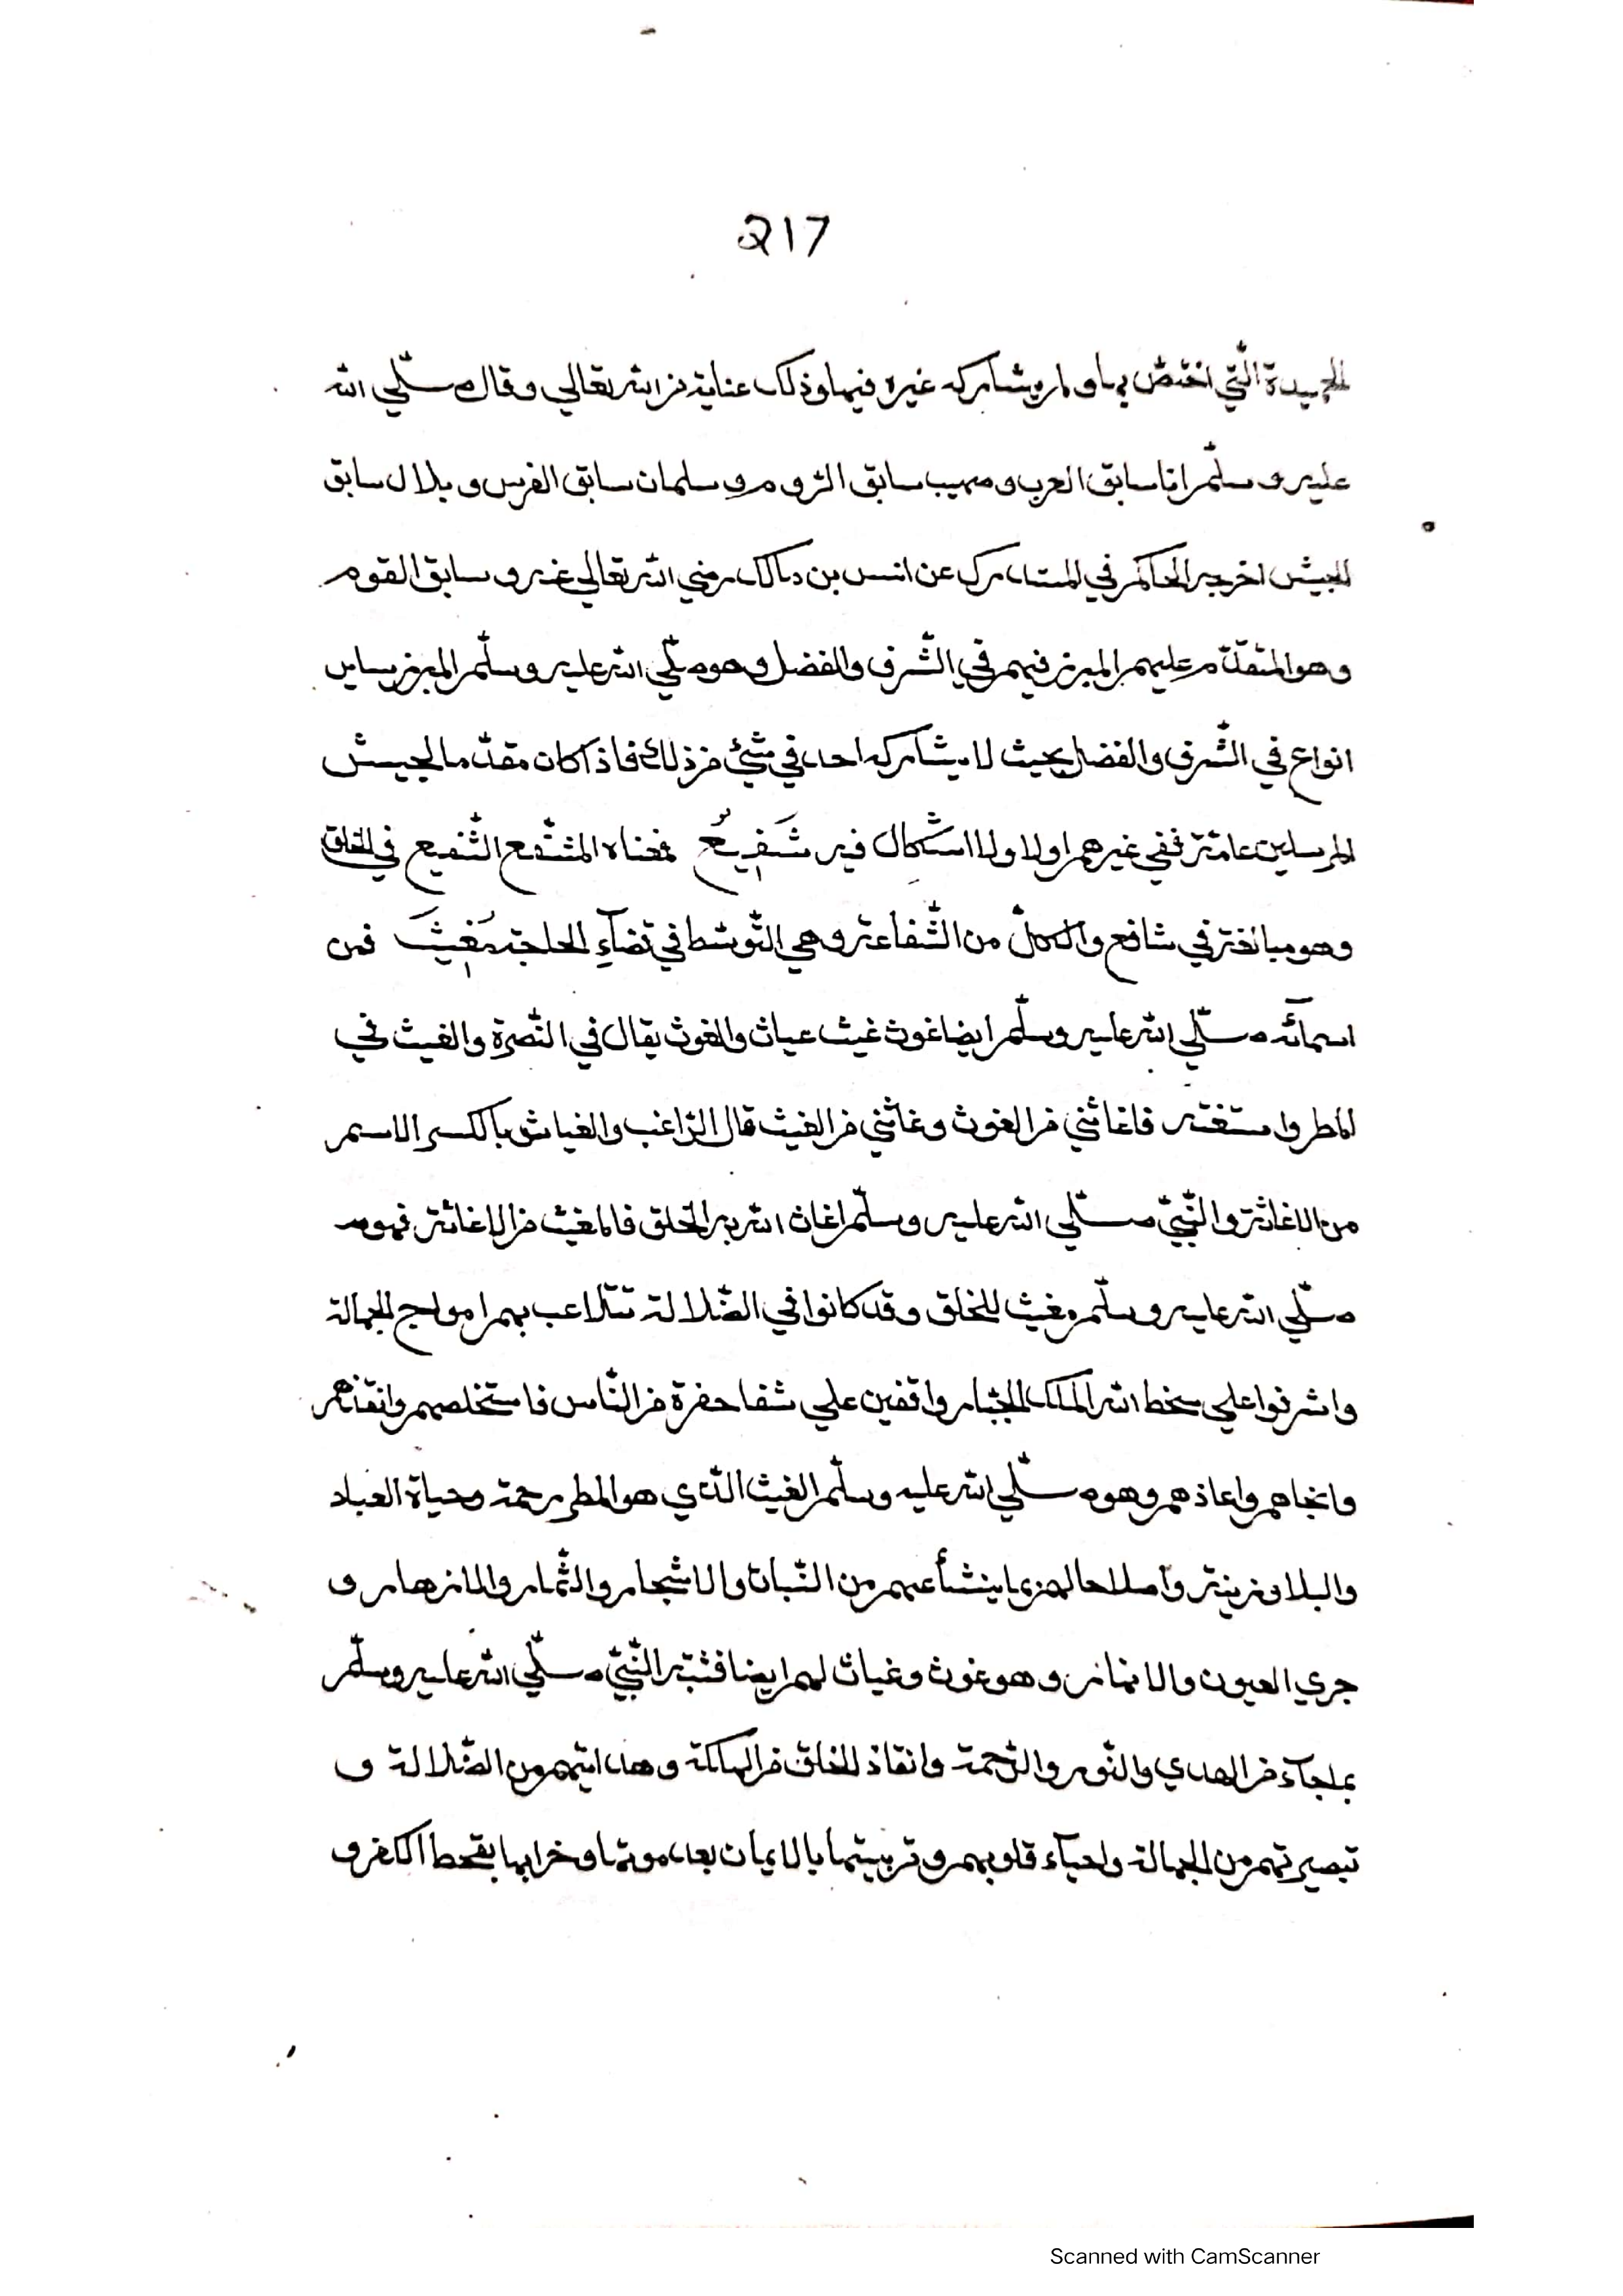 217
الحميدة الّتي اختصّ بها ولم يشاركه غيره فيها وذلك عناية من الله تعالي وقال صلّي الله
عليه وسلّم انا سابق العرب وصهيب سابق الرّوم وسلمان سابق الفرس وبلال سابق
الحبش اخرجه الحاكم في المستدرك عن انس بن مالك رضي الله تعالي عنه وسابق القوم
وهو المتقدّم عليهم المبرز فيهم في الشّرف والفضل وهو صلّي الله عليه وسلّم المبرز بساير
انواع في الشّرف والفضل بحيث لا يشاركه احد في شيئ من ذلك فاذا كان مقدّما لجيش
المرسلين عامّة ففي غيرهم اولا ولا اشكال فيه شَفِيعٌ فمعناه المشفّع الشّفيع في الخلق
وهو مبالغة في شافع والكلّ من الشّفاعة وهي التّوسّط في قضآءِ الحاجة مُغِيثٌ فمن
اسمآئه صلّي الله عليه وسلّم ايضا غوث غيث غياث والغوث يقال في النّصرة والغيث في
المطر واستغثته فاغاثني من الغوث وغاثني من الغيث قال الرّاغب والغياث بالكسر الاسم
من الاغاثة والنّبيّ صلّي الله عليه وسلّم اغاث الله به الخلق فالمغيث من الاغاثة فهو
صلّي الله عليه وسلّم مغيث للخلق وقد كانوا في الضّلالة تتلاعب بهم امواج الجهالة
واشرفوا علي سخط الله الملك الجبّار واقفين علي شفا حفرة من النّار فاستخلصهم وانقذهم
وانجاهم واعاذهم وهو صلّي الله عليه وسلّم الغيث الّذي هو المطر رحمة وحياة العباد
والبلاد وزينة واصلاحا لهم بما ينشأ عنهم من النّبات والاشجار والثّمار والازهار و
جري العيون والانهار وهو غوث وغياث لهم ايضا فشبّه النّبيّ صلّي الله عليه وسلّم
بما جآء من الهدي والنّور والرّحمة وانقاذ الخلق من الهلكة وهدايتهم من الضّلالة و
تبصيرتهم من الجهالة واحيآء قلوبهم وتربيتها بالايمان بعد موتها وخرابها بقحط الكفر و
Scanned with CamScanner